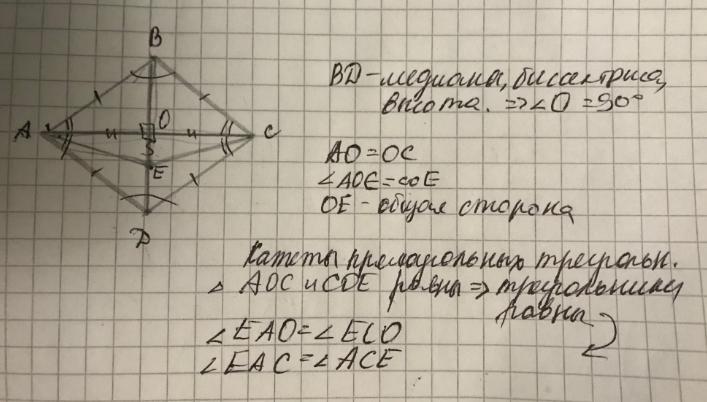 B
A
O
C
S
E
D
BD-медиана, биссектриса,
высота. => ∠O = 90°
AO = OC
∠AOE = COE
OE - общая сторона
Катеты прямоугольных треугольн.
△ AOC и COE равны => треугольники
равны
∠EAO = ∠ECO
∠EAC = ∠ACE